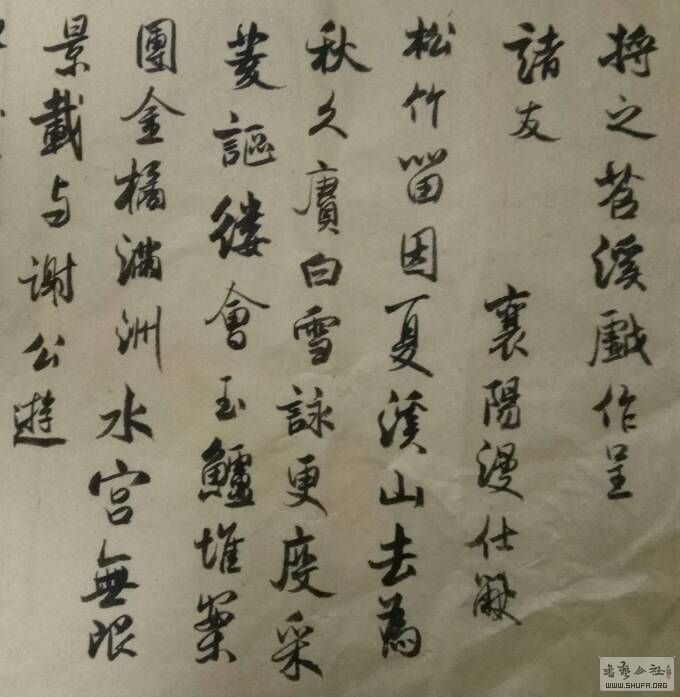 将之苕溪戲作呈
諸友
襄陽漫仕黻
松竹留因夏溪山去為
秋久賡白雪詠更度采
菱謳縷會玉鱸堆案
團金橘滿洲水宮無限
景載与謝公遊
書藝公社
WWW.SHUFA.ORG